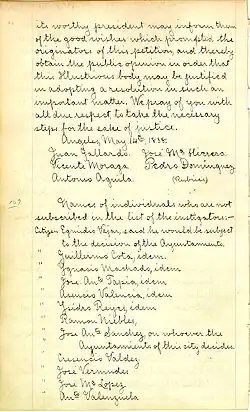 its worthy president may inform them
of the good wishes which prompted the
originators of this petition, and thereby
obtain the public opinion in order that
this Illustrious body may be justified
in adopting a resolution in such an
important matter. We pray of you with
all due respect to take the necessary
steps for the sake of justice.
Angeles, May 14th, 1838.
Juan Gallardo. José Ma Herrera
Vicente Moraga Pedro Dominguez
Antonio Aguila (Rubrics)
Names of individuals who are not
subscribed in the list of the instigators:-
Citizen Egnidio Vejar, said he would be subject
to the decision of the Ayuntamiento.
" Guillermo Cota, idem
" Ygnacio Machado, idem
" Jose Anto Tapia, idem
" Asencio Valencia, idem
" Ysidro Reyes, idem
" Ramon Nieblas,
" Jose Anto Sanchez, or whoever the
Ayuntamiento of this city decides
" Cresencio Valdez
" Jose Vermudes
" Jose Ma Lopez
" Anto Valenzuela